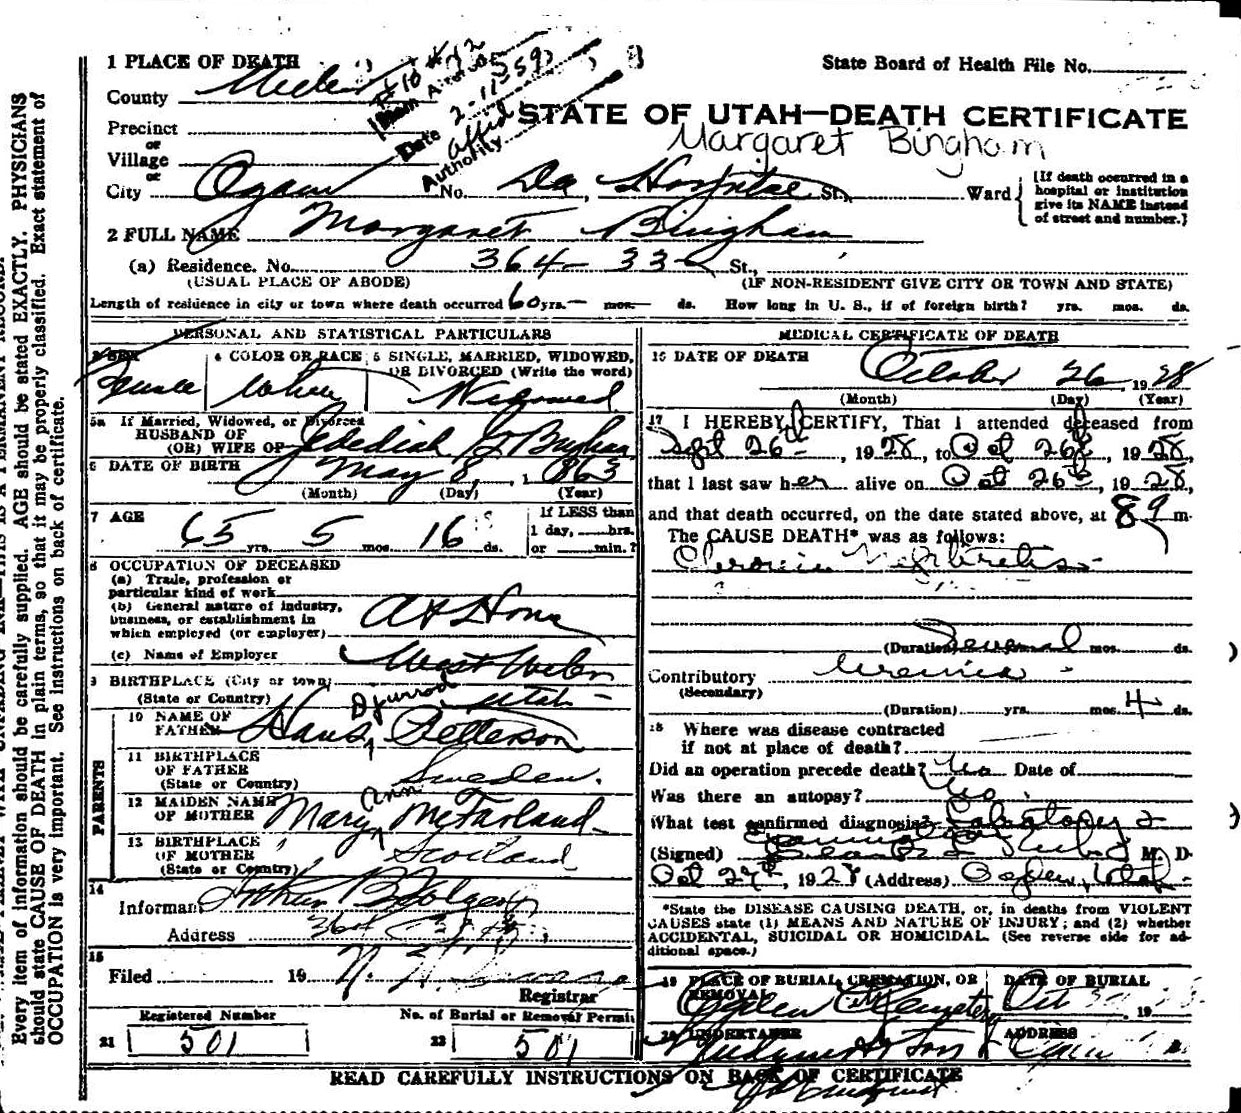 1 PLACE OF DEATH
State Board of Health File No.
County Weber
#10 #12
Item Amended
Date 2-11-59
Affid
Authority
STATE OF UTAH—DEATH CERTIFICATE
Margaret Bingham
Precinct
or
Village
or
City Ogden No. Dee Hospital St., Ward
{If death occurred in a hospital or institution give its NAME instead of street and number.}
2 FULL NAME Margaret Bingham
(a) Residence. No. 364-33 St.,
(USUAL PLACE OF ABODE) (IF NON-RESIDENT GIVE CITY OR TOWN AND STATE)
Length of residence in city or town where death occurred 60 yrs. — mos. — ds. How long in U. S., if of foreign birth? yrs. mos. ds.
PERSONAL AND STATISTICAL PARTICULARS
3 SEX 4 COLOR OR RACE 5 SINGLE, MARRIED, WIDOWED, OR DIVORCED (Write the word)
Female White Widowed
5a If Married, Widowed, or Divorced
HUSBAND OF
(OR) WIFE OF Jedediah G Bingham
6 DATE OF BIRTH May 8, 1863
(Month) (Day) (Year)
7 AGE 65 yrs. 5 mos. 16 ds.
If LESS than
1 day, hrs.
or min.?
8 OCCUPATION OF DECEASED
(a) Trade, profession or
particular kind of work
(b) General nature of industry,
business, or establishment in
which employed (or employer) At Home
(c) Name of Employer
9 BIRTHPLACE (City or town) West Weber
(State or Country) Utah
10 NAME OF
FATHER Hans Djurrod Petterson
11 BIRTHPLACE
OF FATHER
(State or Country) Sweden.
12 MAIDEN NAME
OF MOTHER Mary Ann McFarland
13 BIRTHPLACE
OF MOTHER
(State or Country) Scotland
PARENTS
14
Informant B Folger
Address 364
15
Filed 19
Registrar
Registered Number
No. of Burial or Removal Permit
21 501 22 501
MEDICAL CERTIFICATE OF DEATH
16 DATE OF DEATH
October 26 1928
(Month) (Day) (Year)
17 I HEREBY CERTIFY, That I attended deceased from
Sept 26th, 1928, to Oct 26th, 1928,
that I last saw her alive on Oct 26th, 1928,
and that death occurred, on the date stated above, at m.
The CAUSE DEATH* was as follows:
Chronic Nephritis
(Duration) Several mos. ds.
Contributory Uremia
(Secondary)
(Duration) yrs. mos. 4 ds.
18 Where was disease contracted
if not at place of death?
Did an operation precede death? No Date of
Was there an autopsy? No
What test confirmed diagnosis? Laboratory &
Examination
(Signed) M. D.
Oct 27th, 1928 (Address) Ogden, Utah
*State the DISEASE CAUSING DEATH, or, in deaths from VIOLENT
CAUSES state (1) MEANS AND NATURE OF INJURY; and (2) whether
ACCIDENTAL, SUICIDAL OR HOMICIDAL. (See reverse side for ad-
ditional space.)
19 PLACE OF BURIAL, CREMATION, OR REMOVAL DATE OF BURIAL
Ogden City Cemetery Oct 19
20 UNDERTAKER ADDRESS
& Son Ogden
READ CAREFULLY INSTRUCTIONS ON BACK OF CERTIFICATE
Every item of information should be carefully supplied. AGE should be stated EXACTLY. PHYSICIANS
should state CAUSE OF DEATH in plain terms, so that it may be properly classified. Exact statement of
OCCUPATION is very important. See instructions on back of certificate.